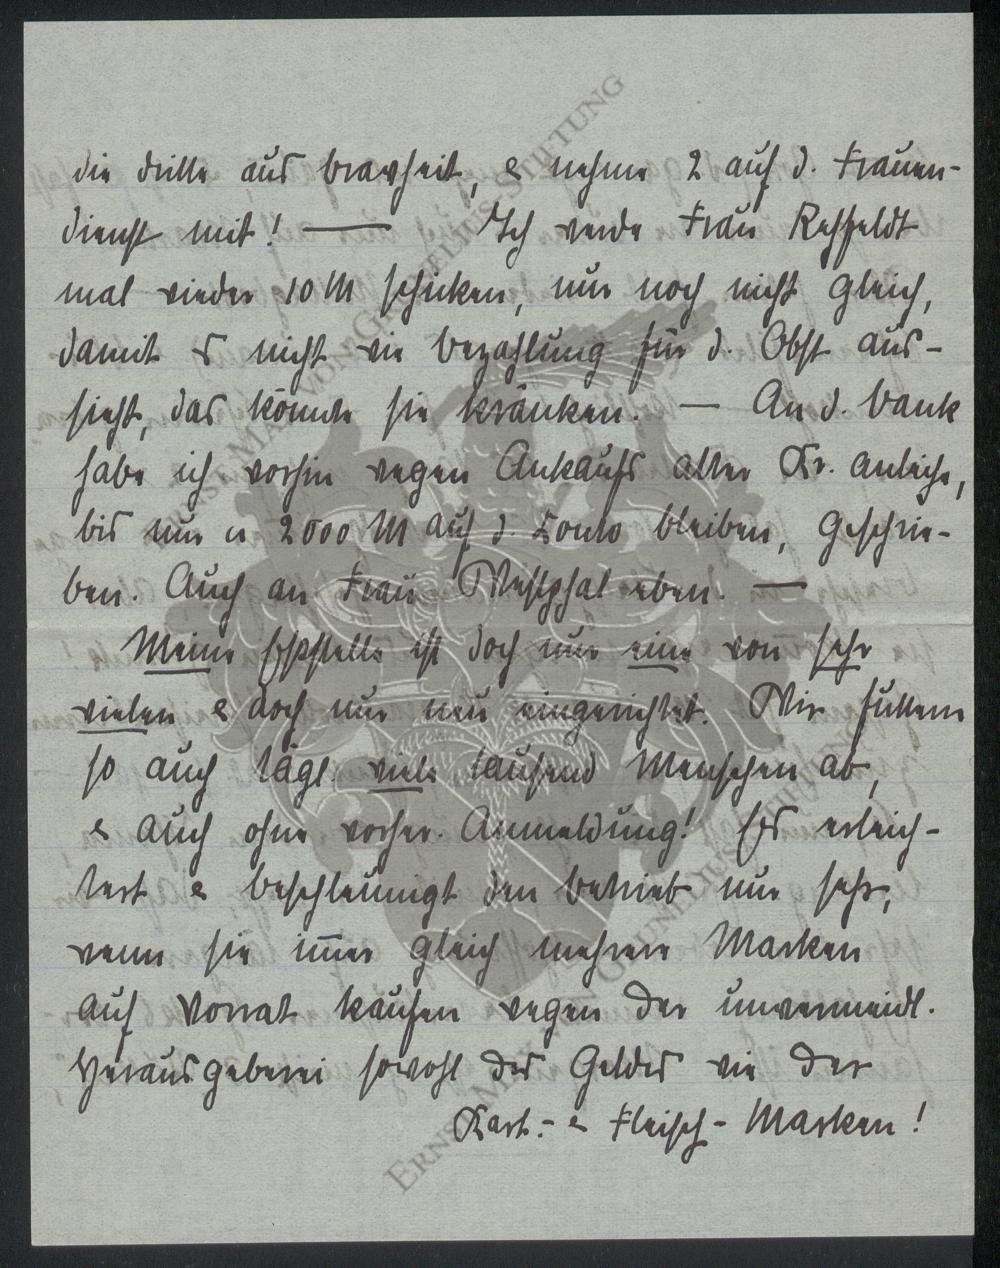 die dritte aus bravheit, & nehme 2 auf d. Frauen-
dienst mit! — Ich werde Frau Rehfeldt
mal wieder 10 M schicken, nur noch nicht gleich,
damit es nicht wie bezahlung für d. Obst aus-
sieht, das könnte sie kränken. — An d. bank
habe ich vorhin wegen Ankaufs alter Kr. anleihe,
bis nur n 2000 M auf d. Konto bleiben, geschrie-
ben. Auch an Frau Westphal eben. —
Meine Eßstelle ist doch nur eine von sehr
vielen & doch nur neu eingerichtet. Wir futtern
so auch tägl. viele tausend Menschen ab,
& auch ohne vorher. Anmeldung! Es erleich-
tert & beschleunigt den betrieb nur sehr,
wenn sie im̅er gleich mehrere Marken
auf Vorrat kaufen wegen der unvermeidl.
Herausgeberei sowohl des Geldes wie der
Kart.- & Fleisch-Marken!
ERNST MAX VON GRUNELIUS STIFTUNG
ERNST MAX VON GRUNELIUS STIFTUNG